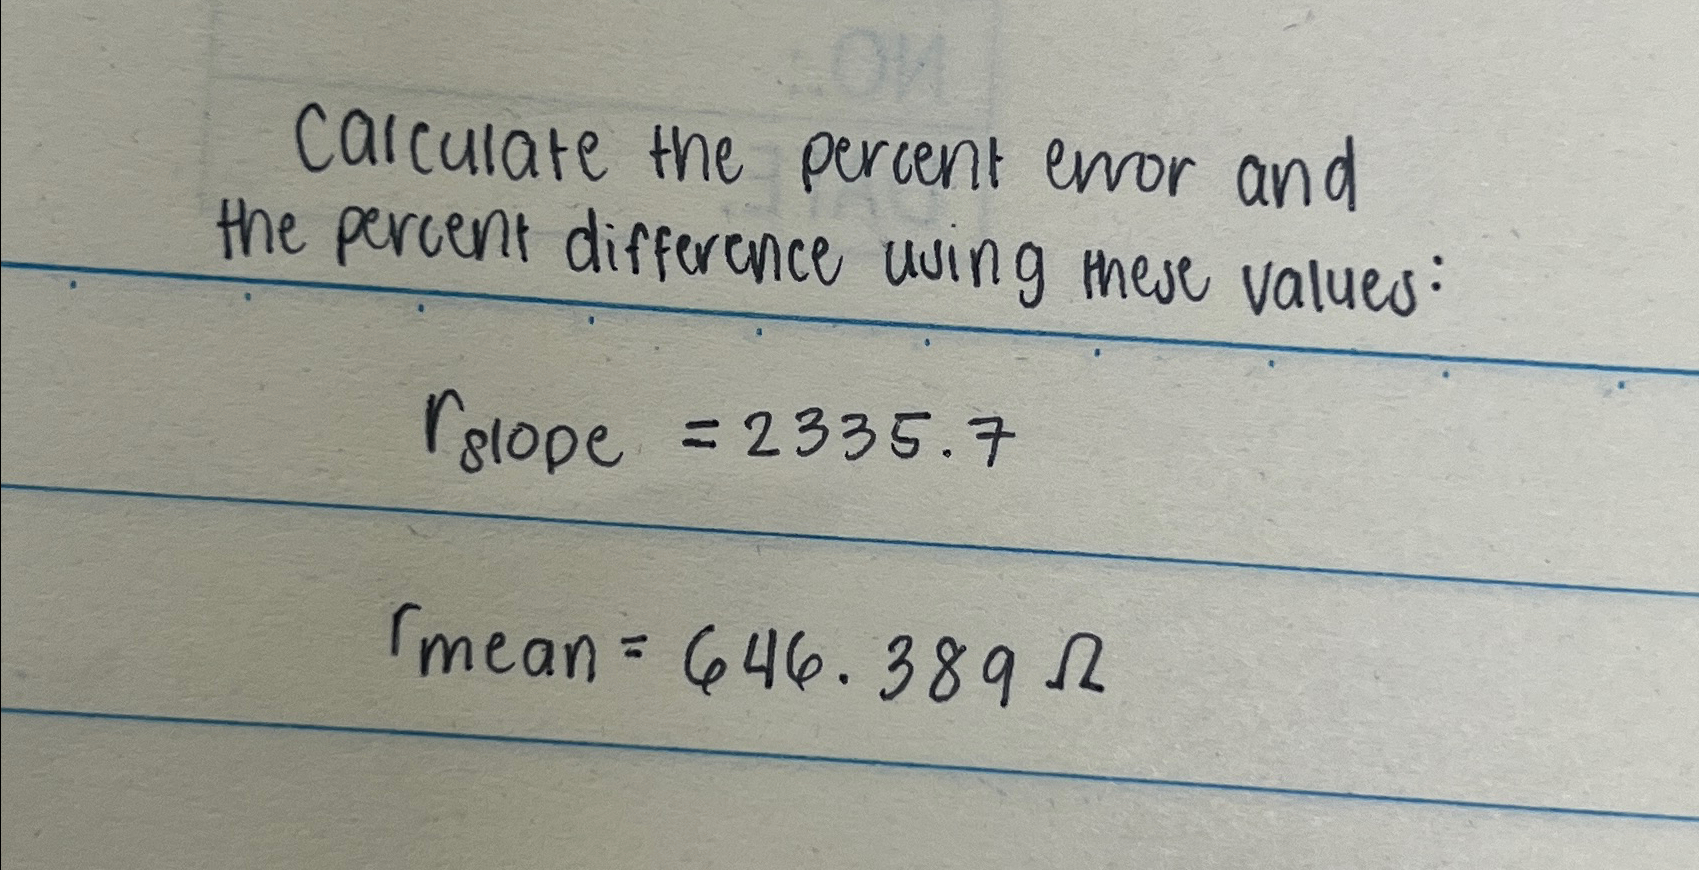 Calculate the percent error and
the percent difference using these values:
r slope = 2335.7
r mean = 646.389 Ω